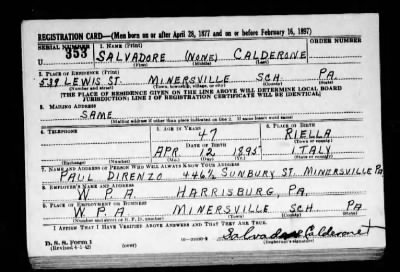 REGISTRATION CARD—(Men born on or after April 28, 1877 and on or before February 16, 1897)
SERIAL NUMBER 1. NAME (Print) ORDER NUMBER
U 353 SALVADORE (NONE) CALDERONE
(First) (Middle) (Last)
2. PLACE OF RESIDENCE (Print)
538 LEWIS ST. MINERSVILLE SCH. PA.
(Number and street) (Town, township, village, or city) (County) (State)
[THE PLACE OF RESIDENCE GIVEN ON THE LINE ABOVE WILL DETERMINE LOCAL BOARD
JURISDICTION; LINE 2 OF REGISTRATION CERTIFICATE WILL BE IDENTICAL]
3. MAILING ADDRESS
SAME
[Mailing address if other than place indicated on line 2. If same insert word same]
4. TELEPHONE 5. AGE IN YEARS 6. PLACE OF BIRTH
47 RIELLA
DATE OF BIRTH (Town or county)
APR 12 1895 ITALY
(Exchange) (Number) (Mo.) (Day) (Yr.) (State or country)
7. NAME AND ADDRESS OF PERSON WHO WILL ALWAYS KNOW YOUR ADDRESS
PAUL DIRENZO 446½ SUNBURY ST. MINERSVILLE PA
8. EMPLOYER'S NAME AND ADDRESS
W.P.A. HARRISBURG, PA.
9. PLACE OF EMPLOYMENT OR BUSINESS
W.P.A. MINERSVILLE SCH. PA.
(Number and street or R. F. D. number) (Town) (County) (State)
I AFFIRM THAT I HAVE VERIFIED ABOVE ANSWERS AND THAT THEY ARE TRUE.
D. S. S. Form 1
(Revised 4-1-42) (over) Salvadore Calderone
(Registrant's signature)